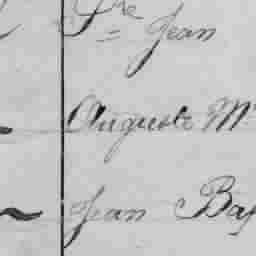 Pre Jean
Auguste Mr
Jean Bap